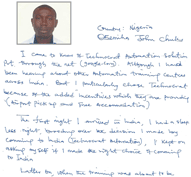 Country: Nigeria
Obienaha John Chuks
I came to know to Technocrat Automation Solution
Put through the net (Google.com) Although I had
been hearing about other Automation training centers
across India. But I particularly chose Technocrat
because of the added incentives which they are providing
(Airport pick up and Free Accomodation)
The first night I arrived in India, I had a sleep
less night, brooding over the decision I made by
coming to India (Technocrat Automation), I kept on
asking myself if I made the right choice of coming
to India
Latter on, when the training was about to be